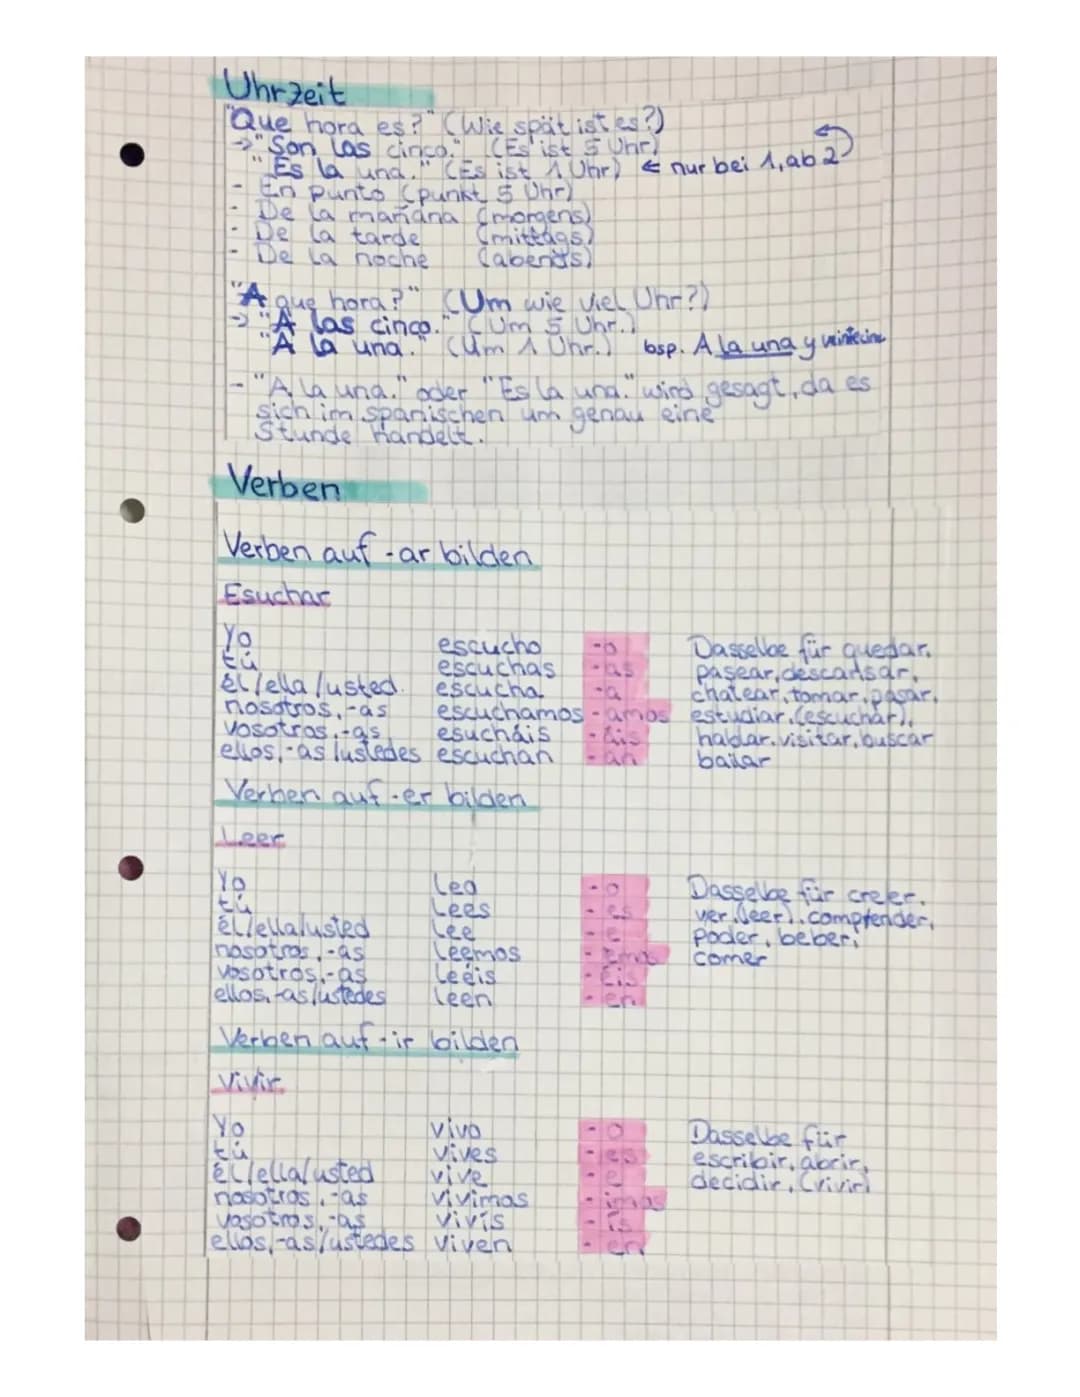 Uhrzeit
"Que hora es?" (Wie spät ist es?)
→ "Son las cinco." (Es ist 5 Uhr)
"Es la una." (Es ist 1 Uhr) ← nur bei 1, ab 2
- En punto (punkt 5 Uhr)
- De la mañana (morgens)
- De la tarde (mittags)
- De la noche (abends)
"A que hora?" (Um wie viel Uhr?)
→ "A las cinco." (Um 5 Uhr.)
"A la una." (Um 1 Uhr.) bsp. A la una y
- "A la una." oder "Es la una." wird gesagt, da es
sich im spanischen um genau eine
Stunde handelt.
Verben
Verben auf -ar bilden
Esuchar
Yo escucho -o Dasselbe für quedar,
tú escuchas -as pasear, descansar,
él/ella/usted. escucha -a chatear, tomar, pasar,
nosotros,-as escuchamos -amos estudiar, (escuchar),
vosotros,-as esucháis -áis hablar, visitar, buscar
ellos,-as/ustedes escuchan -an bailar
Verben auf -er bilden
Leer
Yo leo -o Dasselbe für creer,
tú lees -es ver, (leer), comprender,
él/ella/usted lee -e poder, beber,
nosotros,-as leemos -emos comer
vosotros,-as leéis -éis
ellos,-as/ustedes leen -en
Verben auf -ir bilden
Vivir
Yo vivo -o Dasselbe für
tú vives -es escribir, abrir,
él/ella/usted vive -e decidir, (vivir)
nosotros,-as vivimos -imos
vosotros,-as vivís -ís
ellos,-as/ustedes viven -en